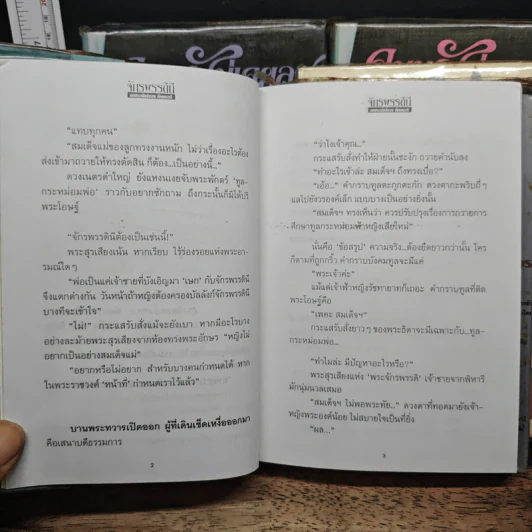 จักรพรรดินี
"แทบทุกคน"
"สมเด็จแม่ของลูกทรงงานหนัก ไม่ว่าเรื่องอะไรต้อง
ส่งเข้ามาถวายให้ทรงตัดสิน ก็ต้อง...เป็นอย่างนี้..."
ดวงเนตรดำใหญ่ ยังแหงนเงยจับพระพักตร์ 'ทูล-
กระหม่อมพ่อ' ราวกับอยากซักถาม ถึงกระนั้นก็มิได้ปริ
พระโอษฐ์
"จักรพรรดินีต้องเป็นเช่นนี้!"
พระสุรเสียงเน้น หากเรียบ ไร้ร่องรอยแห่งพระอา-
รมณ์ใดๆ
"พ่อเป็นแค่เจ้าชายที่บังเอิญมา 'เษก' กับจักรพรรดินี
จึงแตกต่างกัน วันหน้าถ้าหญิงต้องครองบัลลังก์จักรพรรดินี
บางทีจะเข้าใจ"
"ไม่!" กระแสรับสั่งแม้จะยังเบา หากมีอะไรบาง
อย่างละม้ายพระสุรเสียงจากห้องทรงพระอักษร "หญิงไม่
อยากเป็นอย่างสมเด็จแม่"
"อยากหรือไม่อยาก สำหรับบางคนกำหนดได้ หาก
ในพระราชวงศ์ 'หน้าที่' กำหนดเราไว้แล้ว"
บานพระทวารเปิดออก ผู้ที่เดินเช็ดเหงื่อออกมา
คือเสนาบดีธรรมการ
2
จักรพรรดินี
"ว่าไงเจ้าคุณ..."
กระแสรับสั่งทำให้ฝ่ายนั้นชะงัก ถวายคำนับลง
"ทำอะไรเข้าล่ะ สมเด็จฯ ถึงทรงเบื่อ?"
"เอ้อ..." คำกราบทูลตะกุกตะกัก ดวงตากะพริบถี่ๆ
แลไปยังวรองค์เล็ก แบบบางเป็นอย่างยิ่งนั้น
"สมเด็จฯ ทรงเห็นว่า ควรปรับปรุงเรื่องการถวายการ
ศึกษาทูลกระหม่อมฟ้าหญิงเสียใหม่"
นั่นคือ 'ข้อสรุป' ความจริง...ต้องยืดยาวกว่านั้น ใคร
ก็ตามที่ถูกกริ้ว คำกราบบังคมทูลจะมีแค่
"พระเจ้าค่ะ"
แม้แต่เจ้าฟ้าหญิงรัชทายาทก็เถอะ คำกราบทูลที่ติด
พระโอษฐ์คือ
"เพคะ สมเด็จฯ"
กระแสรับสั่งยาวๆ ของพระธิดาจะมีเฉพาะกับ...ทูล-
กระหม่อมพ่อ...
"ทำไมล่ะ มีปัญหาอะไรหรือ?"
พระสุรเสียงแห่ง 'พระจักรพรรดิ' เจ้าชายจากพิทารี
มักนุ่มนวลเสมอ
"สมเด็จฯ ไม่พอพระทัย..." ดวงตาที่ทอดมายังเจ้า-
หญิงพระองค์น้อย ไม่สบายใจเป็นที่ยิ่ง
"ผล..."
3